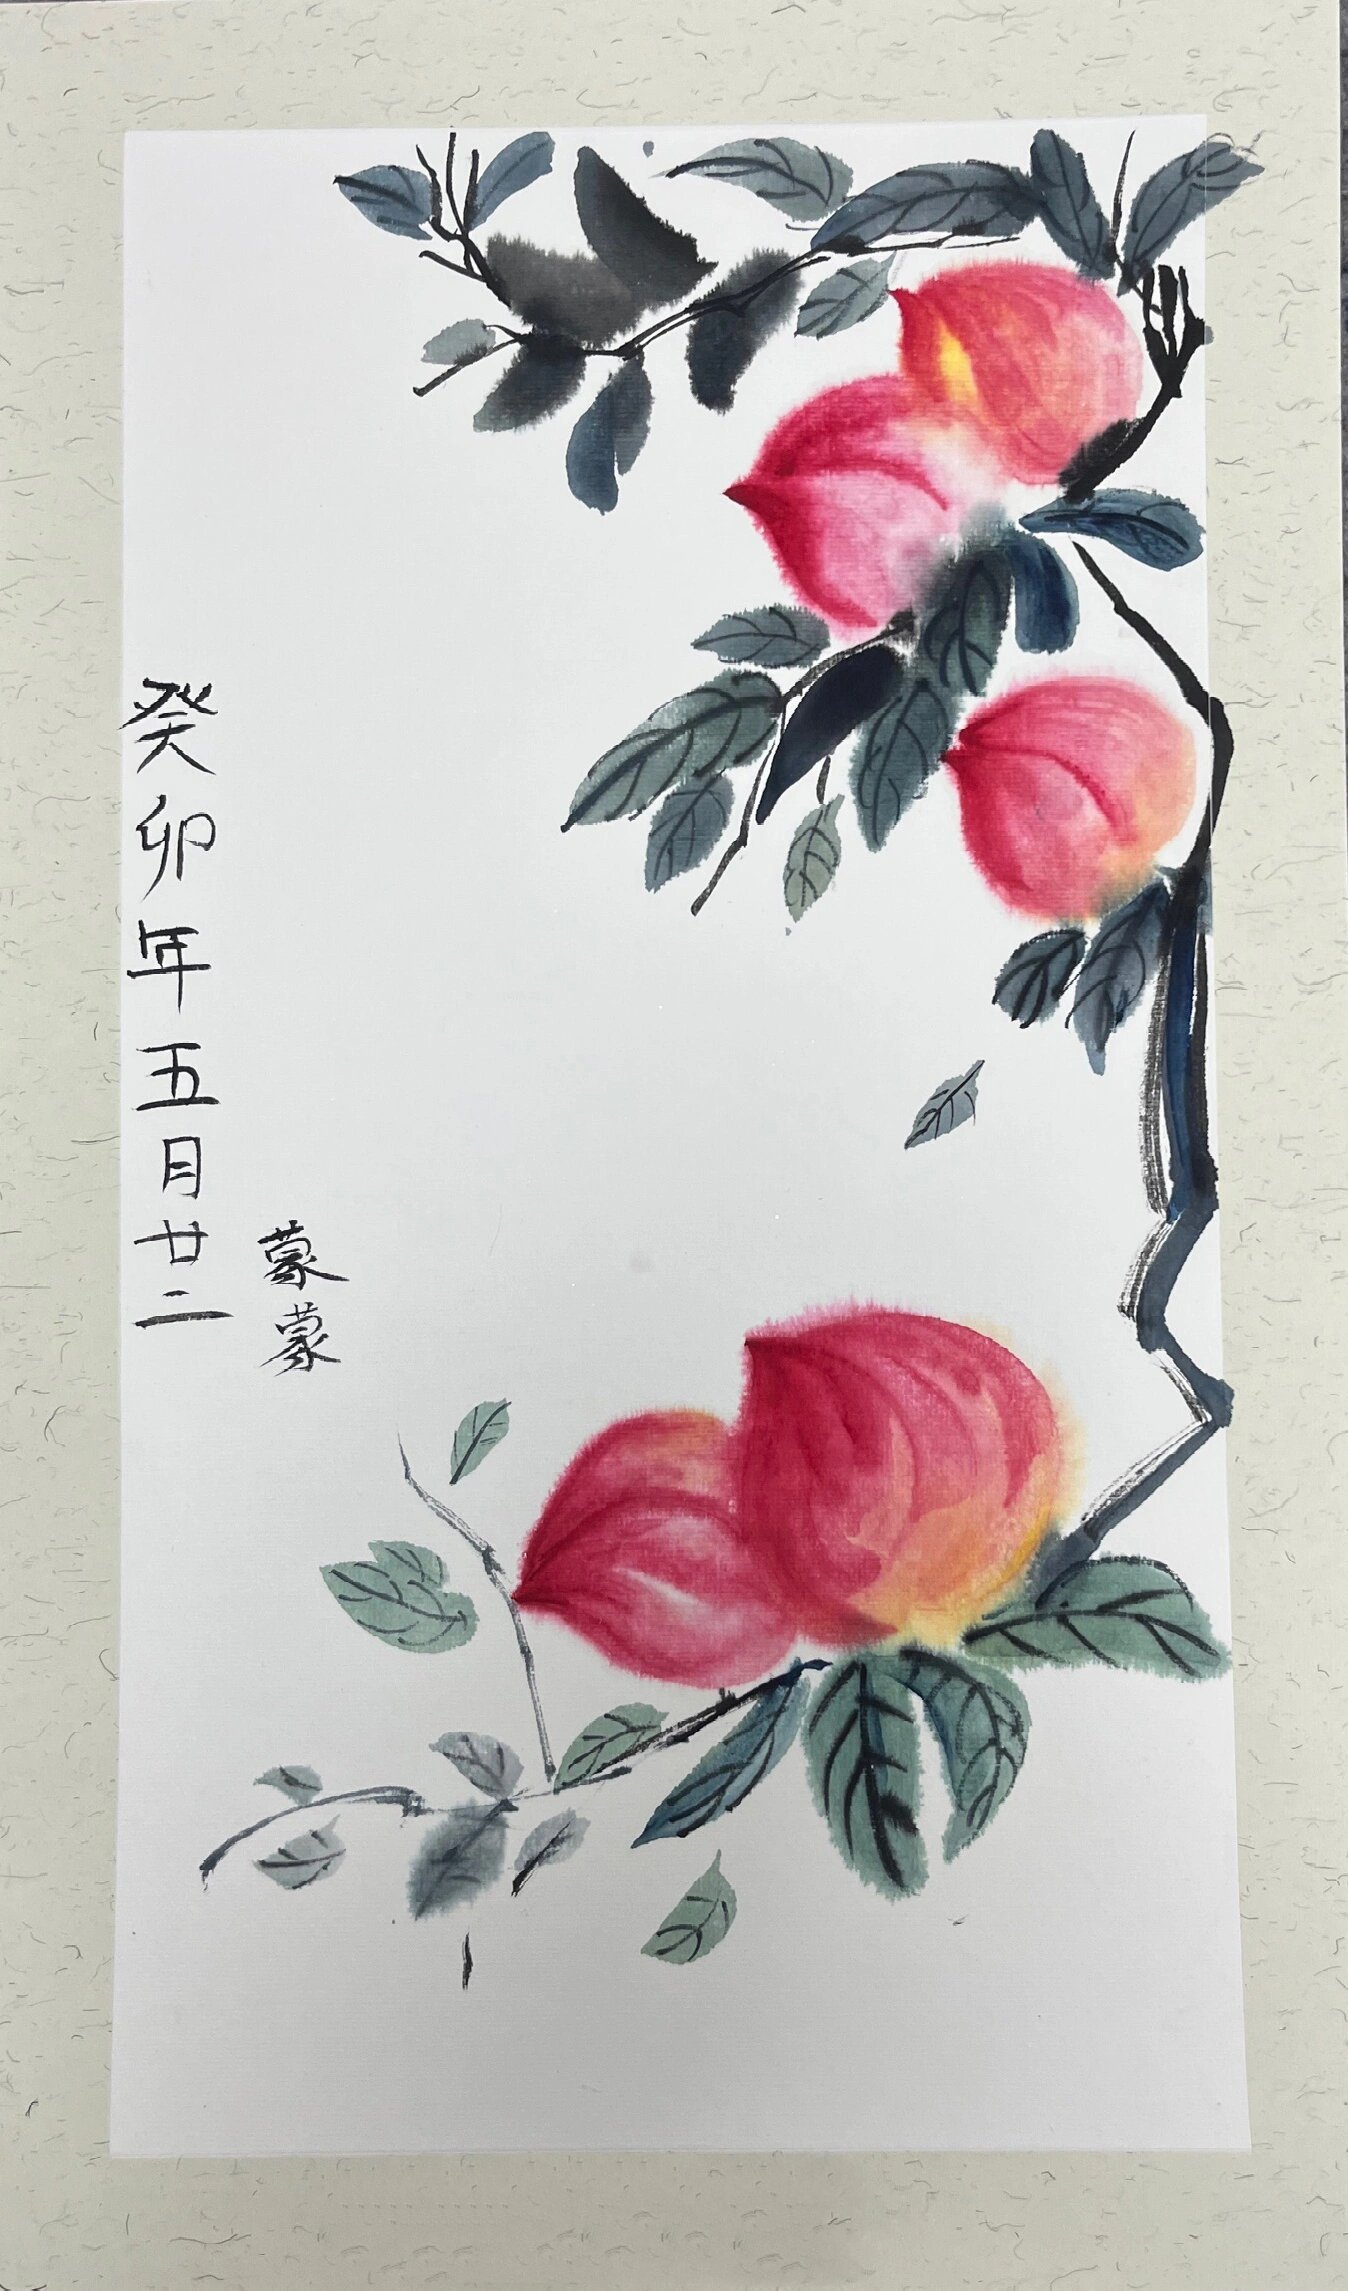 癸卯年五月廿二
蒙蒙